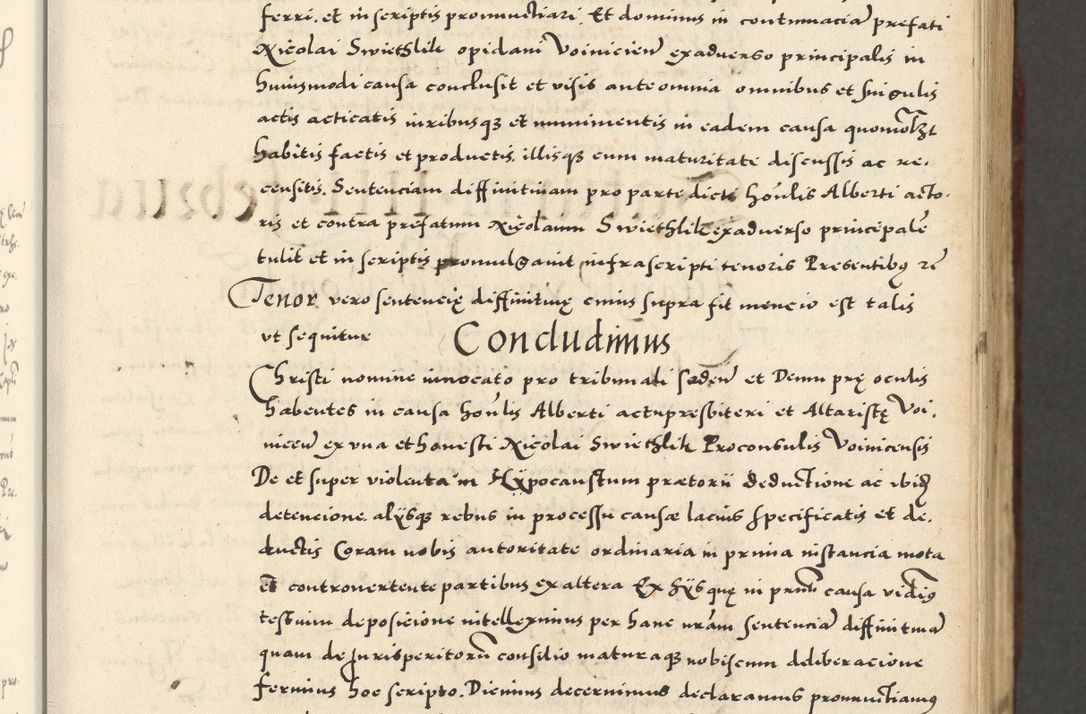 ferri. et in scriptis pronunctiari. Et dominus in contumacia prefati
Nicolai Swiethlik opidani Voinicien exadverso principalis in
huiusmodi causa conclusit et visis ante omnia omnibus et singulis
actis acticatis iuribusq3 et munimentis in eadem causa quomolzt
habitis factis et productis. illisq3 cum maturitate discussis ac re.
censitis. Sentenciam diffinitivam pro parte dicti honlis Alberti acto.
ris et contra prefatum Nicolaum Swiethlik exadverso principale
tulit et in scriptis promulgavit infrascripti tenoris Presentibus re
Tenor vero sentencię diffinitivę cuius supra fit mencio est talis
ut sequitur Concludimus
Christi nomine invocato pro tribunali seden et Deum prę oculis
habentes in causa honlis Alberti actu presbiteri et Altaristę Voi.
nicen ex una et honesti Nicolai Swiethlik Proconsulis Voinicensis
De et super violenta in Hypocaustum prætorii deductione ac ibid
detencione. alijsq3 rebus in processu causæ lacius specificatis et de.
ductis Coram nobis autoritate ordinaria in prima instancia mota
et controvertente partibus ex altera Ex hijs quę in causa vidimus
testium deposicione intelleximus per hanc nram sentencia diffinitiva
quam de Jurisperitorum consilio maturaq3 nobiscum deliberacione
ferimus hoc scripto. Dicimus decernimus declaramus pronunctiamus